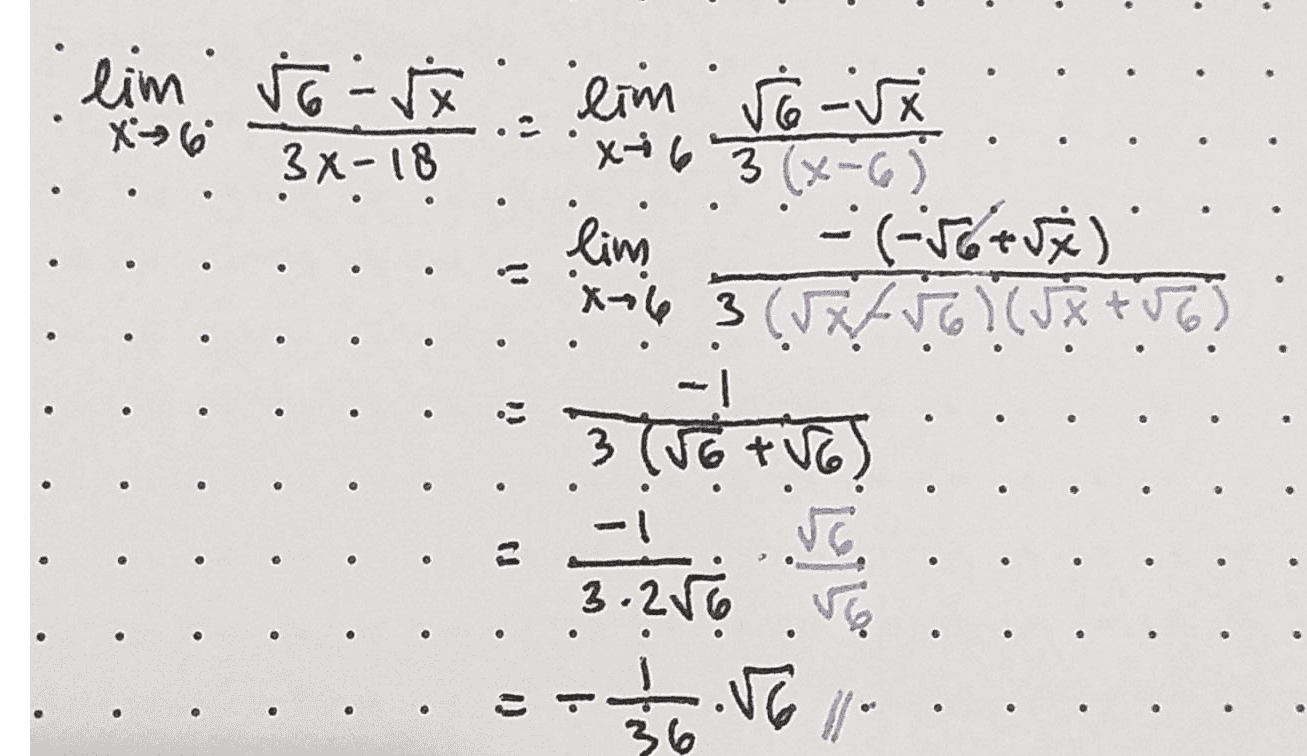 lim x→6 (√6 - √x)/(3x-18) = lim x→6 (√6 - √x)/(3(x-6))
= lim x→6 -(-√6+√x)/(3(√x-√6)(√x+√6))
= -1/(3(√6+√6))
= -1/(3.2√6) · √6/√6
= -1/36 .√6 //